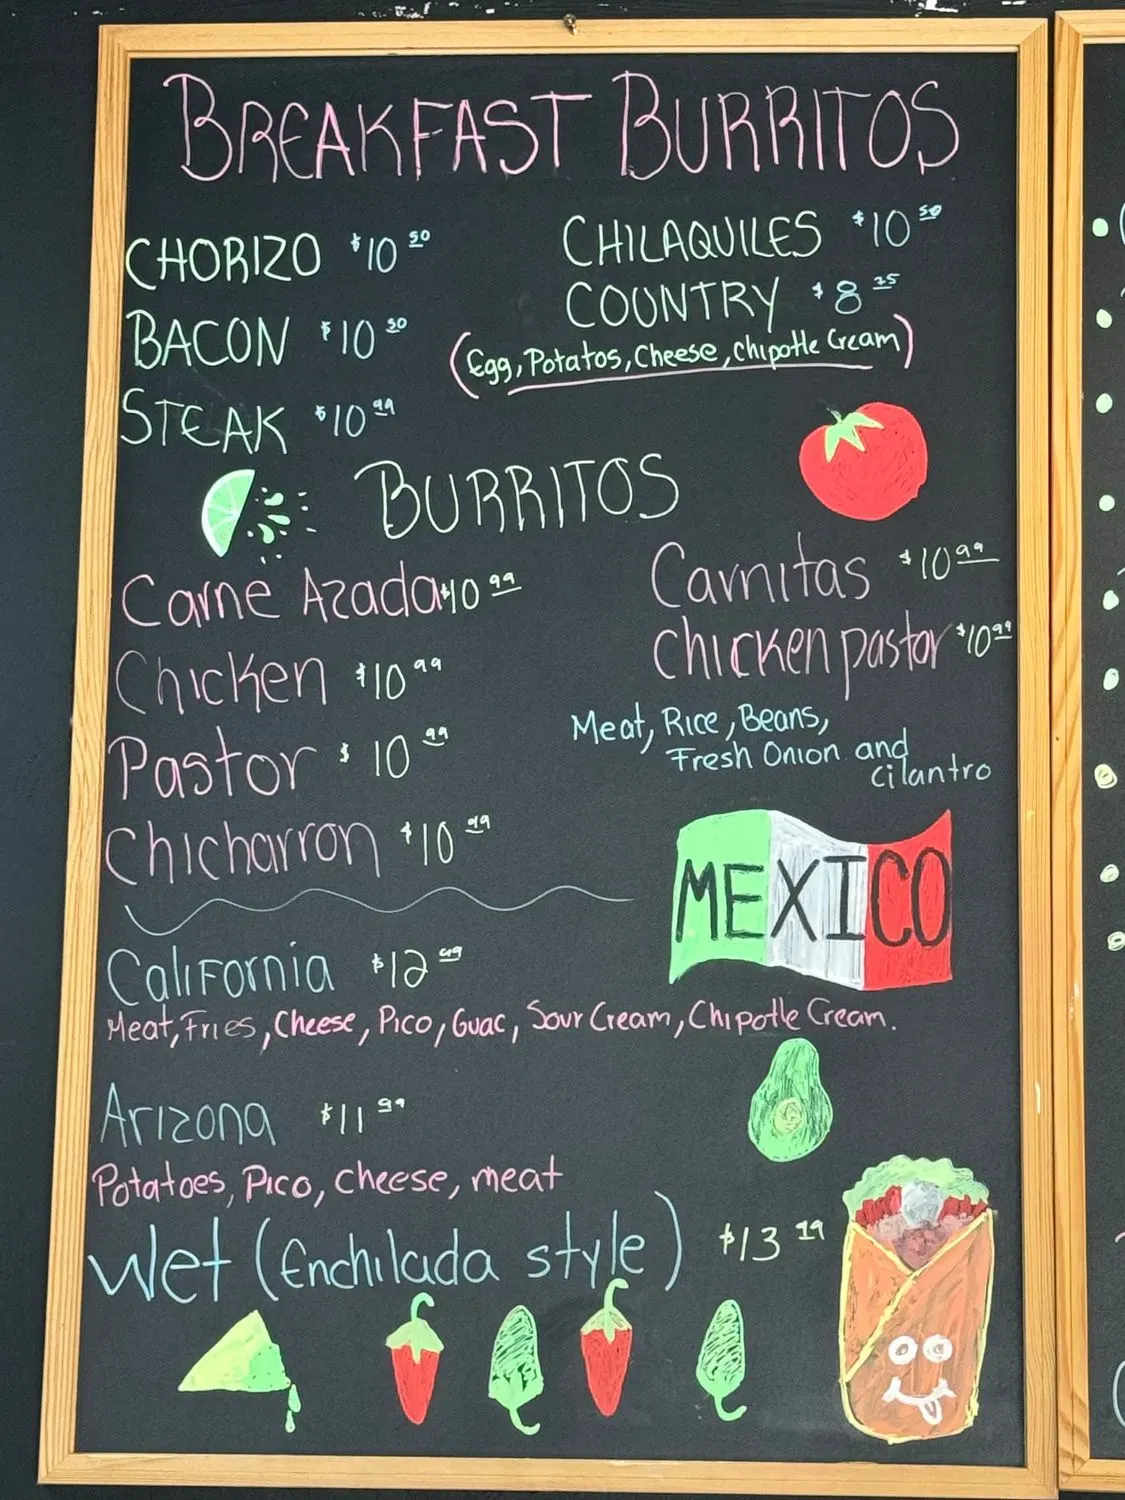 BREAKFAST BURRITOS
CHORIZO $10 50
BACON $10 50
STEAK $10 99
CHILAQUILES $10 50
COUNTRY $8 75
(Egg, Potatos, Cheese, Chipotle Cream)
BURRITOS
Carne Azada $10 99
Chicken $10 99
Pastor $10 99
Chicharron $10 99
Carnitas $10 99
Chicken pastor $10 99
Meat, Rice, Beans,
Fresh Onion and
cilantro
MEXICO
California $12 49
Meat, Fries, Cheese, Pico, Guac, Sour Cream, Chipotle Cream.
Arizona $11 99
Potatoes, Pico, cheese, meat
Wet (Enchilada style) $13 19